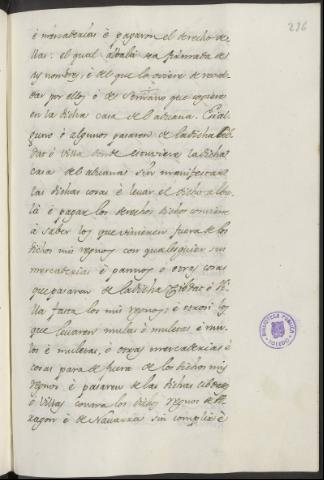 236
è mercaderias è pagaron el derecho de
llas: el qual albala sea firmada de
sus nombres, è del que la oviere de recab
dar por ellos, ò de Scrivano que estoviere
en la dicha casa del aduana. E si al
guno ò algunos pasaren de la dicha Cib
dat ò villa donde estoviere la dicha
casa del aduana sin manifestar
las dichas cosas è levar el dicho alba
lá è pagar los derechos dichos conviene
à saber los que vinieren fuera de los
dichos mis regnos con qualesquier sus
mercaderias è pannos è otras cosas
que pasaren de la dicha Cibdat ò Vi
lla facta los mis regnos, è otrosi los
que levaren mulas è muletas è mu
los è muletos, è otras mercaderias è
cosas para de fuera de los dichos mis
regnos è pasaren de las dichas cibdades
ò villas contra los dichos regnos de A
ragon è de Navarra sin complir è
BIBLIOTECA PUBLICA
TOLEDO